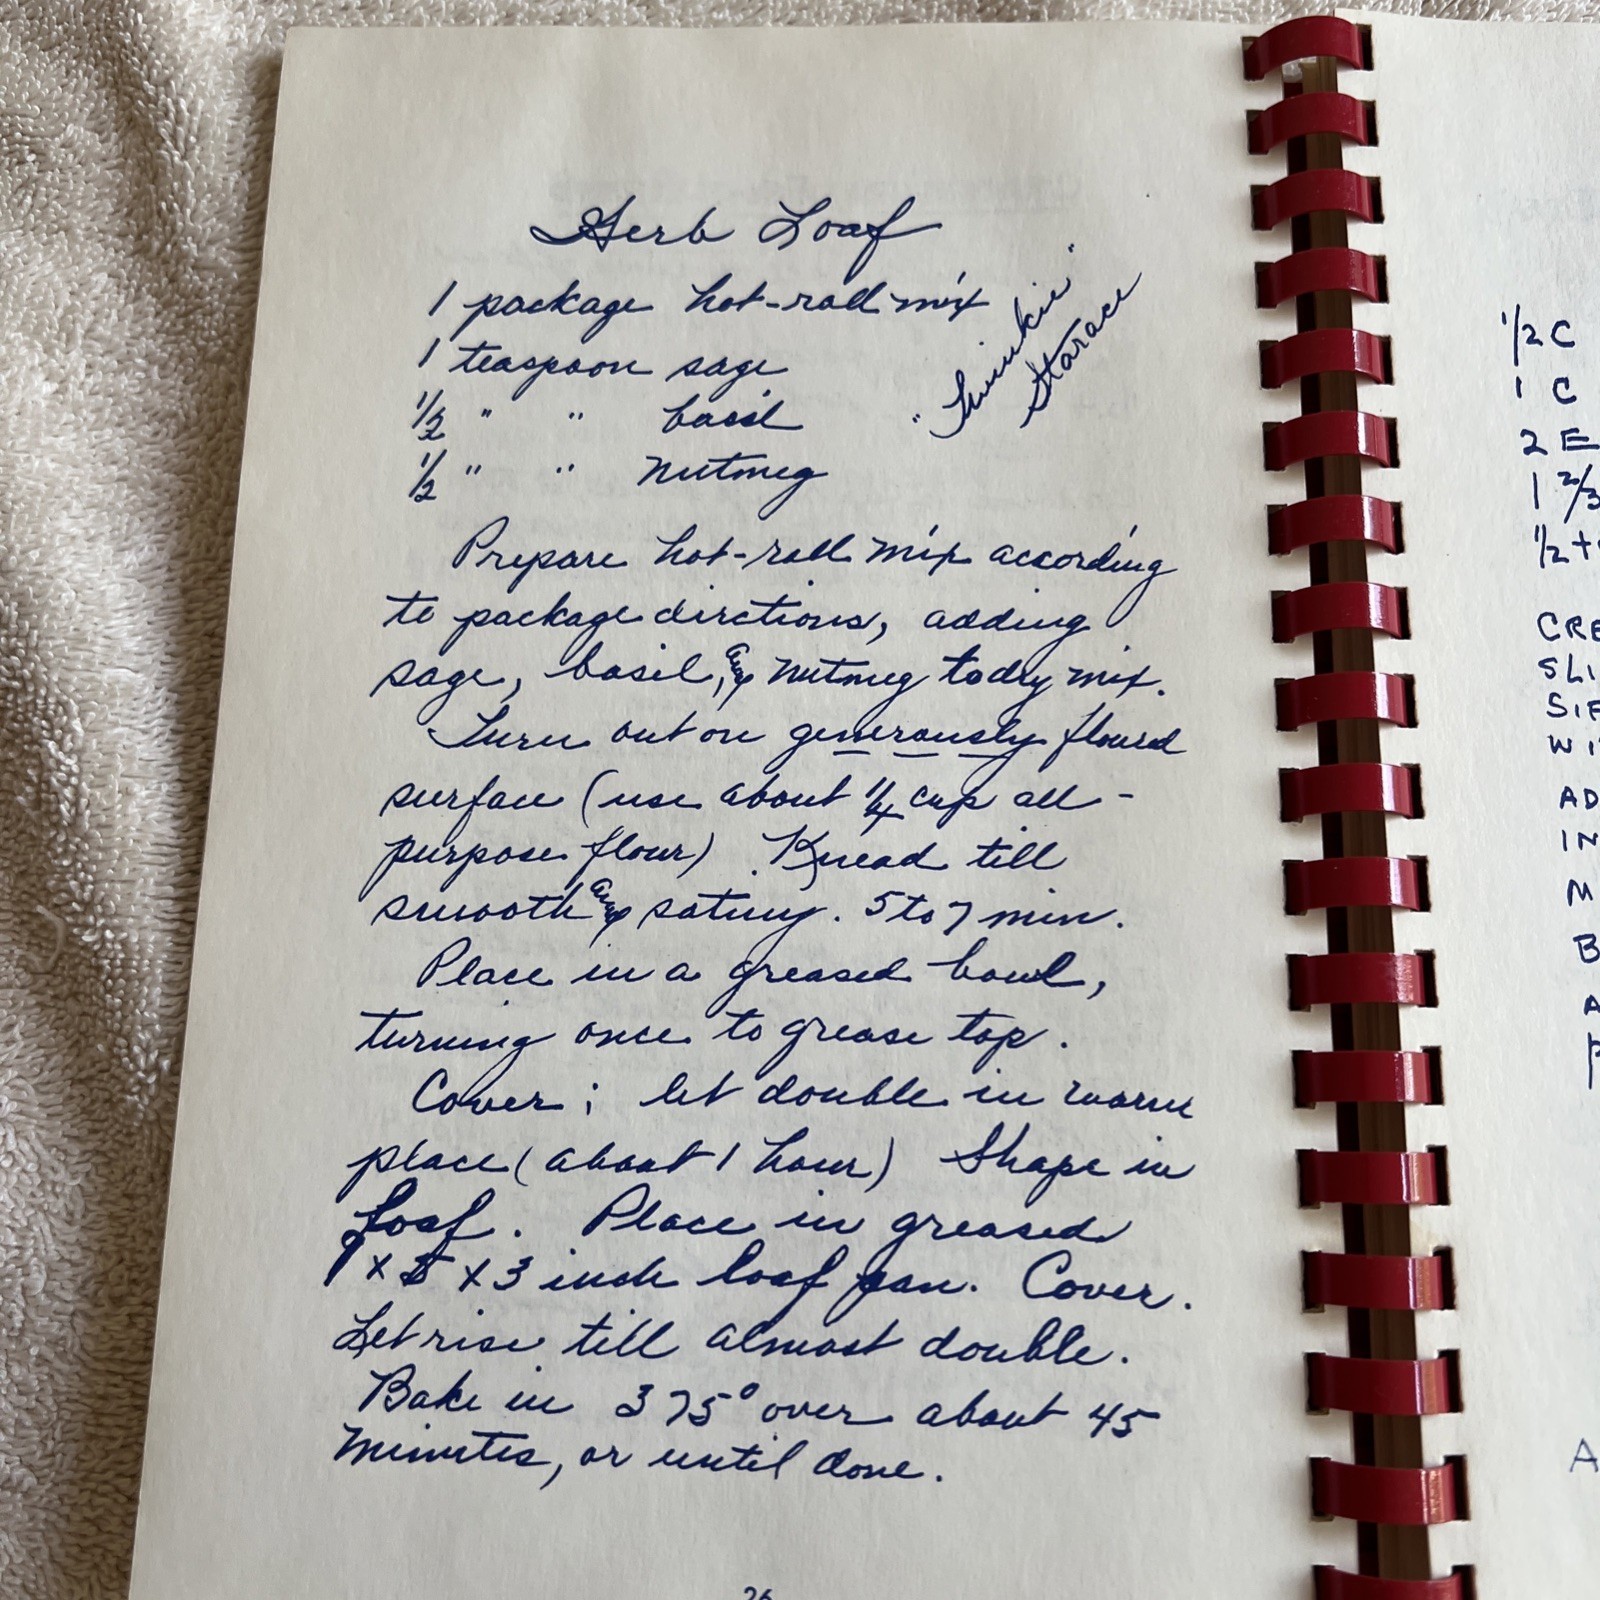 Herb Loaf
1 package hot-roll mix
1 teaspoon sage
1/2 " " basil
1/2 " " nutmeg
"Twinkie"
Starace
Prepare hot-roll mix according
to package directions, adding
sage, basil, and nutmeg to dry mix.
Turn out on generously floured
surface (use about 1/4 cup all-
purpose flour) Knead till
smooth and satiny. 5 to 7 min.
Place in a greased bowl,
turning once to grease top.
Cover; let double in warm
place (about 1 hour) Shape in
loaf. Place in greased
9 x 5 x 3 inch loaf pan. Cover.
Let rise till almost double.
Bake in 375° oven about 45
minutes, or until done.
26
1/2 C
1 C
2 E
1 2/3
1/2 +
CRE
SLI
SIF
WI
AD
IN
M
B
A
P
A